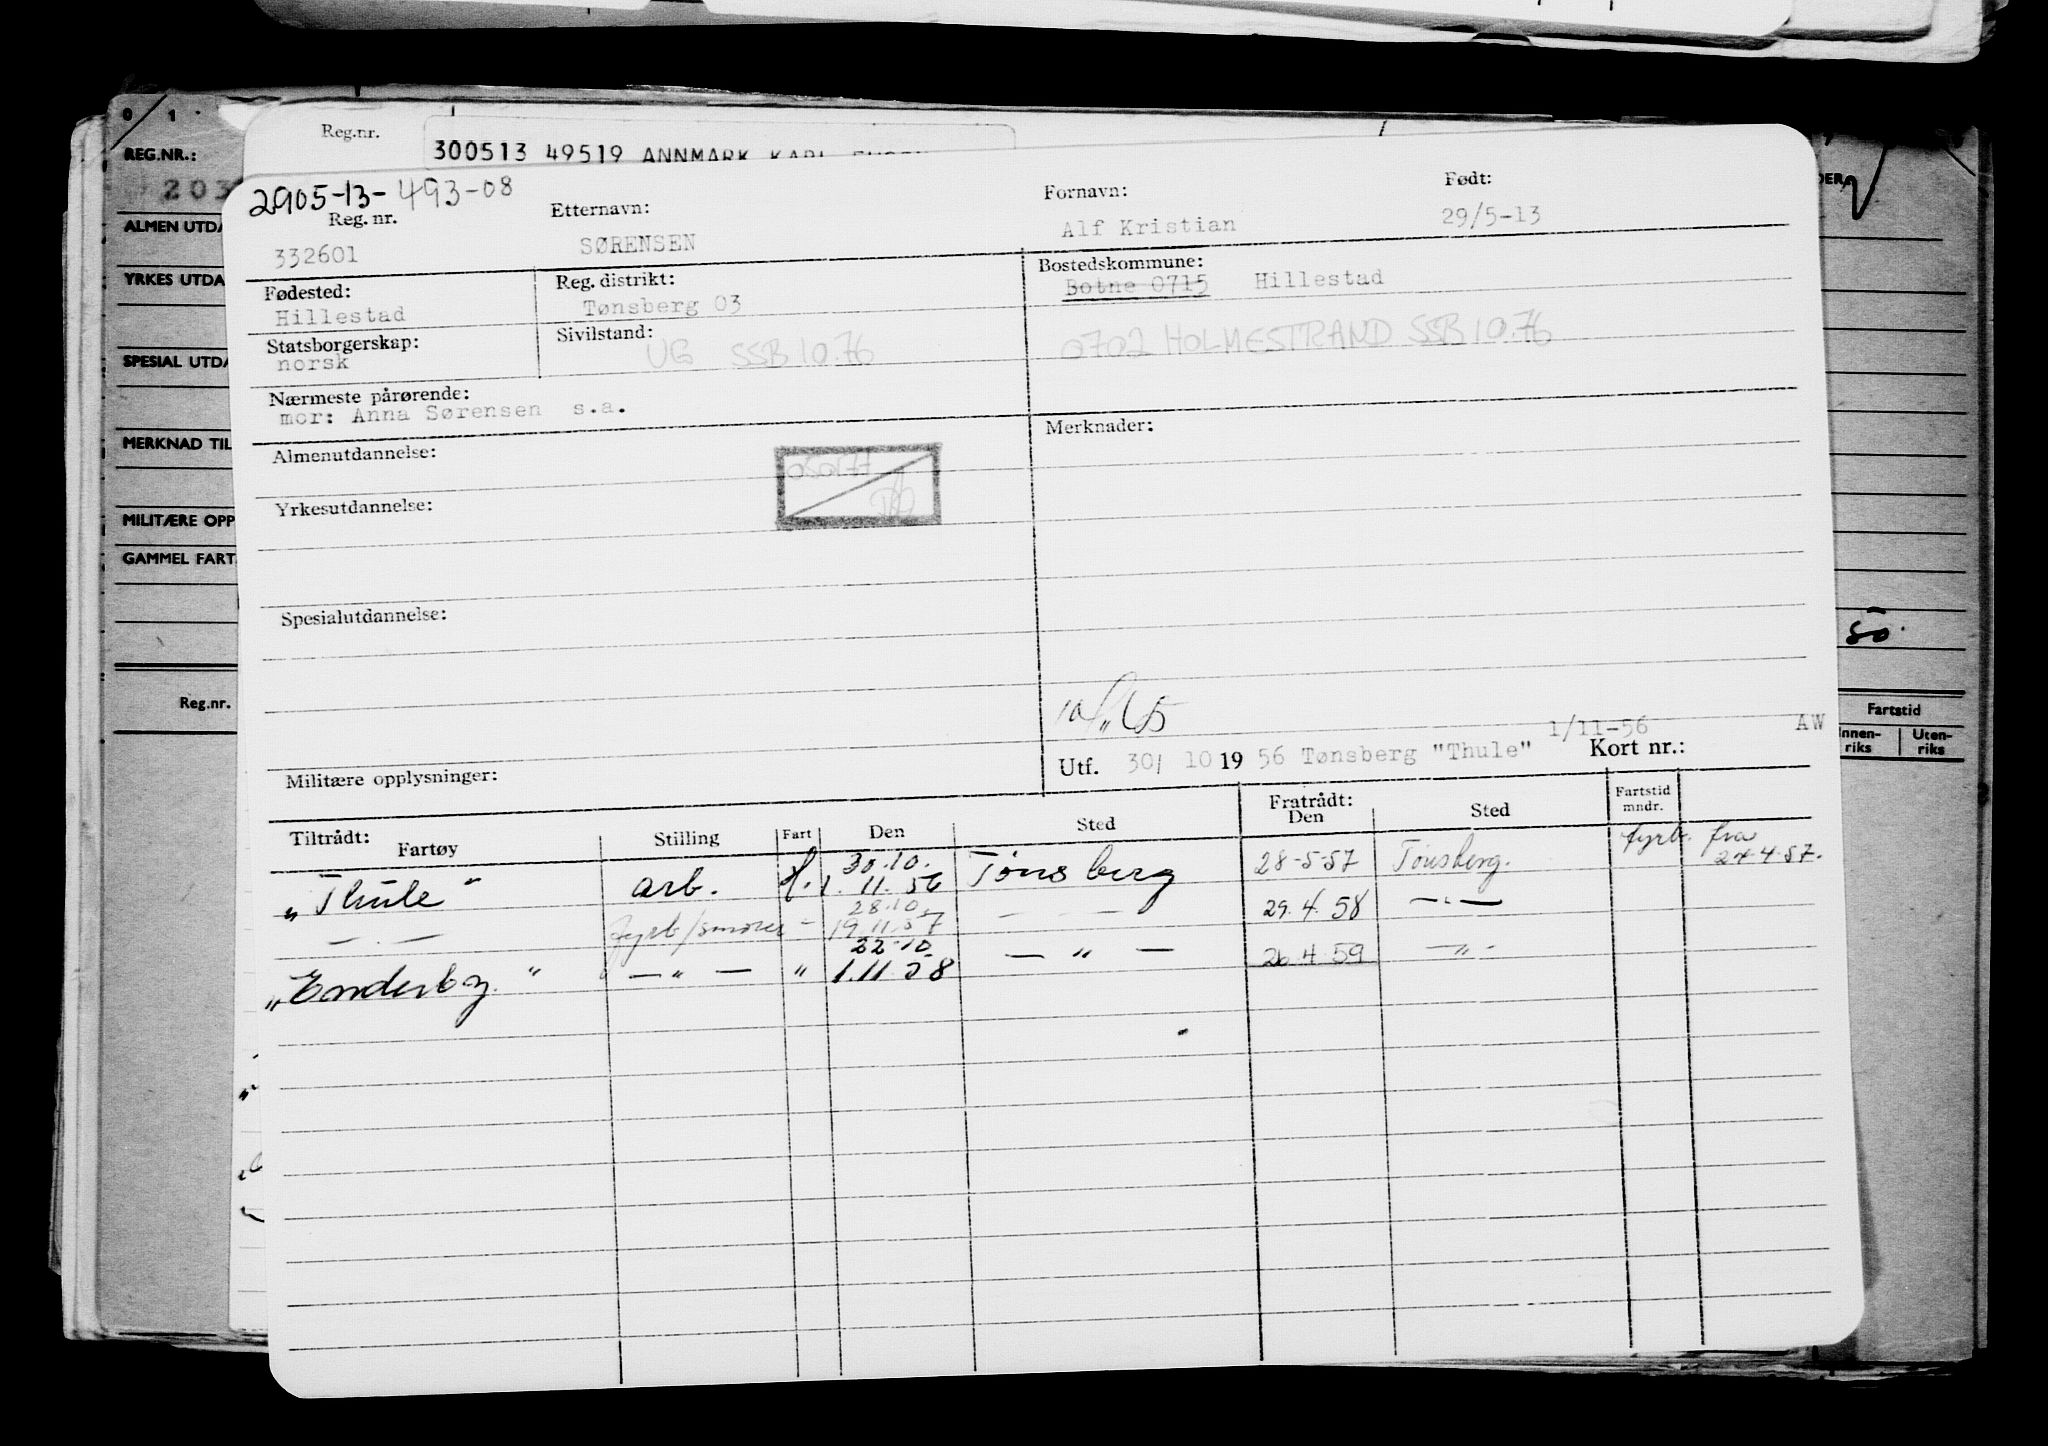 0 1
REG.NR.:
203
ALMEN UTDA
YRKES UTDA
SPESIAL UTDA
MERKNAD TIL
MILITÆRE OPP
GAMMEL FART
Reg.nr.
Reg.nr.
300513 49519 ANNMARK KARL
2905-13-493-08
Reg. nr.
332601
Etternavn:
SØRENSEN
Fornavn:
Alf Kristian
Født:
29/5-13
Fødested:
Hillestad
Reg. distrikt:
Tønsberg 03
Bostedskommune:
Botne 0715 Hillestad
Statsborgerskap:
norsk
Sivilstand:
UG SSB 10.76
0702 HOLMESTRAND SSB 10.76
Nærmeste pårørende:
mor: Anna Sørensen s.a.
Almenutdannelse:
Merknader:
Yrkesutdannelse:
Spesialutdannelse:
Militære opplysninger:
1/11-56 AW
Utf. 30/ 10 19 56 Tønsberg "Thule" Kort nr.:
Tiltrådt:
Fartøy Stilling Fart Den Sted
Fratrådt:
Den Sted
Fartstid
mndr.
"Thule" arb. 30.10. 1.11.56 Tønsberg 28-5-57 Tønsberg. fyrb. fra 24.4.57.
— . — fyrb/smører - 28.10. 19.11.57 — - — 29.4.58 — " —
"Enderby." — " — " 22.10. 1.11.58 — " — 26.4.59 — " -
50.
Fartstid
Innen-
riks
Uten-
riks